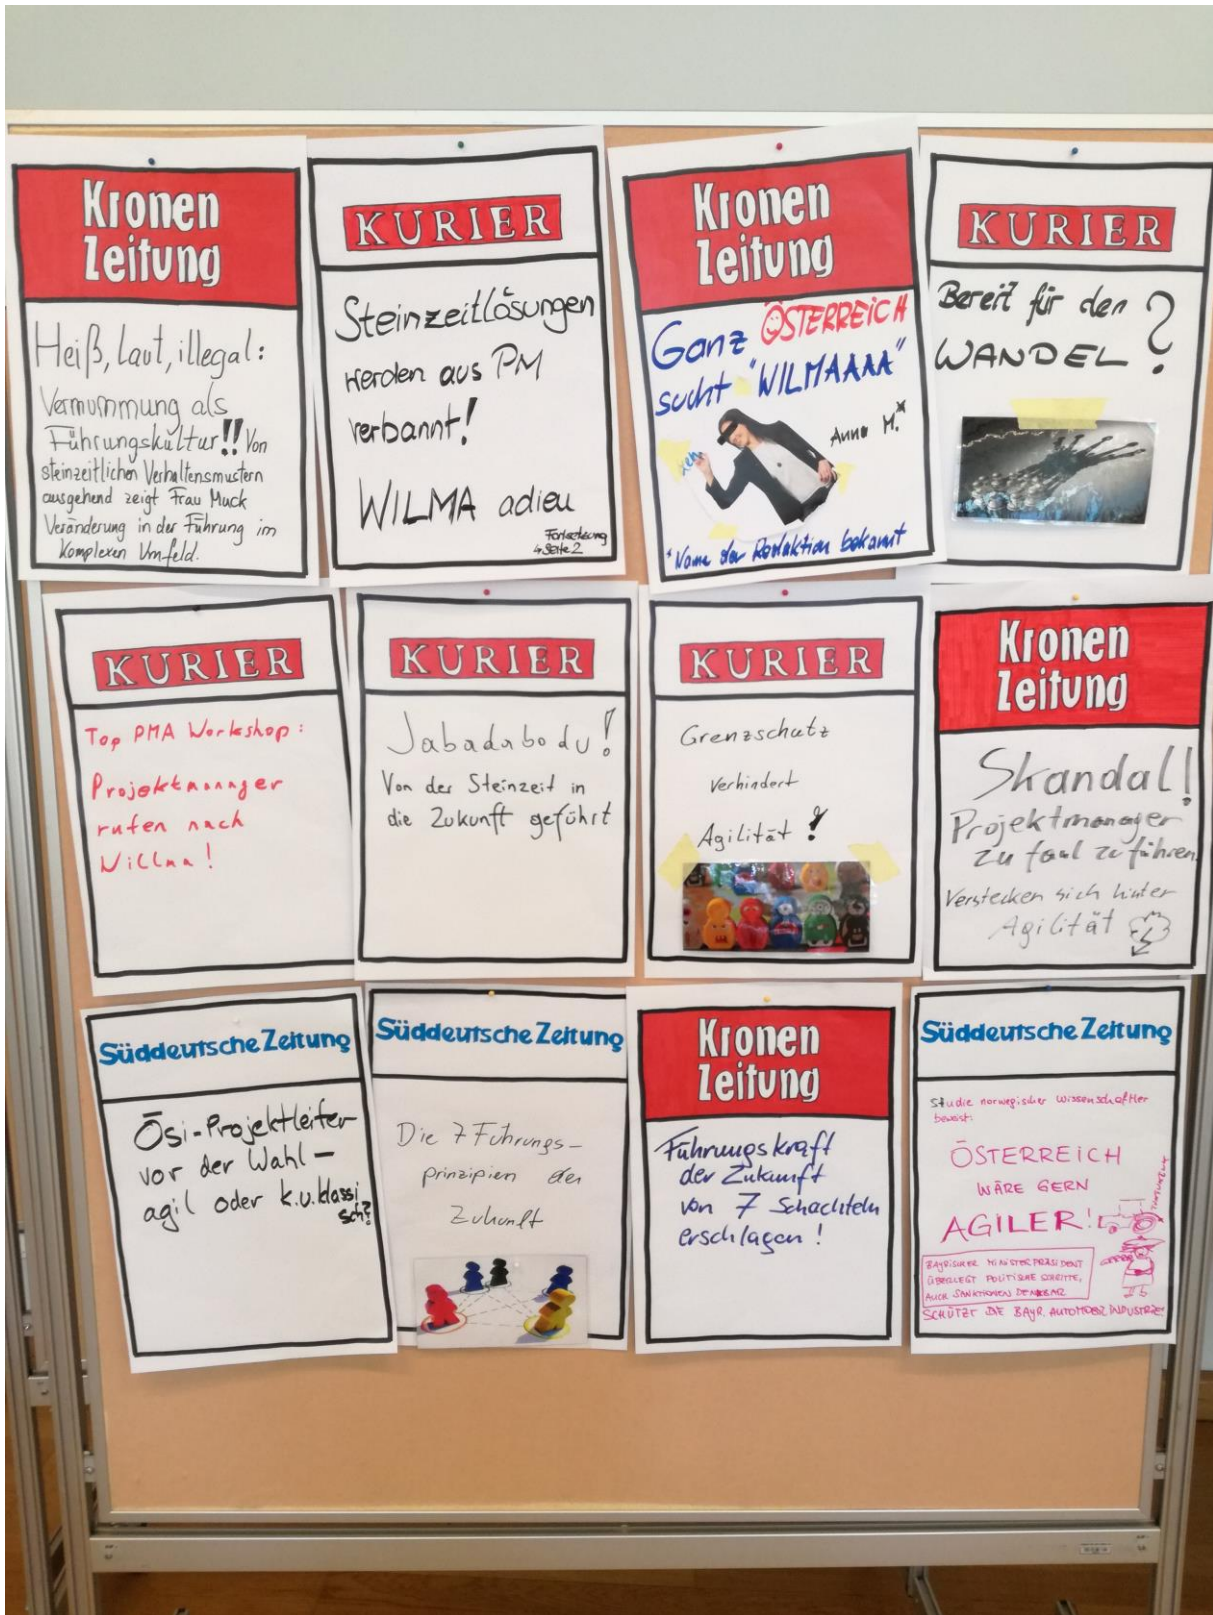 Kronen
Zeitung
Heiß, Laut, illegal:
Vermummung als
Führungskultur!! Von
steinzeitlichen Verhaltensmustern
ausgehend zeigt Frau Muck
Veränderung in der Führung im
Komplexen Umfeld.
KURIER
Steinzeitlösungen
werden aus PM
verbannt!
WILMA adieu
Fortsetzung
Seite 2
Kronen
Zeitung
Ganz ÖSTERREICH
sucht "WILMAAAA"
Anna M.*
*Name der Redaktion bekannt
KURIER
Bereit für den
WANDEL?
KURIER
Top PMA Workshop:
Projektmanager
rufen nach
Willma!
KURIER
Jabadabodu!
Von der Steinzeit in
die Zukunft geführt
KURIER
Grenzschutz
verhindert
Agilität!
Kronen
Zeitung
Skandal!
Projektmanager
zu faul zu führen.
Verstecken sich hinter
Agilität
Süddeutsche Zeitung
Ösi-Projektleiter
vor der Wahl –
agil oder k.u.klassi
sch?
Süddeutsche Zeitung
Die 7 Führungs-
prinzipien der
Zukunft
Kronen
Zeitung
Führungskraft
der Zukunft
von 7 Schachteln
erschlagen!
Süddeutsche Zeitung
Studie norwegischer Wissenschaftler
beweist:
ÖSTERREICH
WÄRE GERN
AGILER!
BAYRISCHER MINISTERPRÄSIDENT
ÜBERLEGT POLITISCHE SCHRITTE,
AUCH SANKTIONEN DENKBAR
SCHÜTZT DIE BAYR. AUTOMOBILINDUSTRIE!